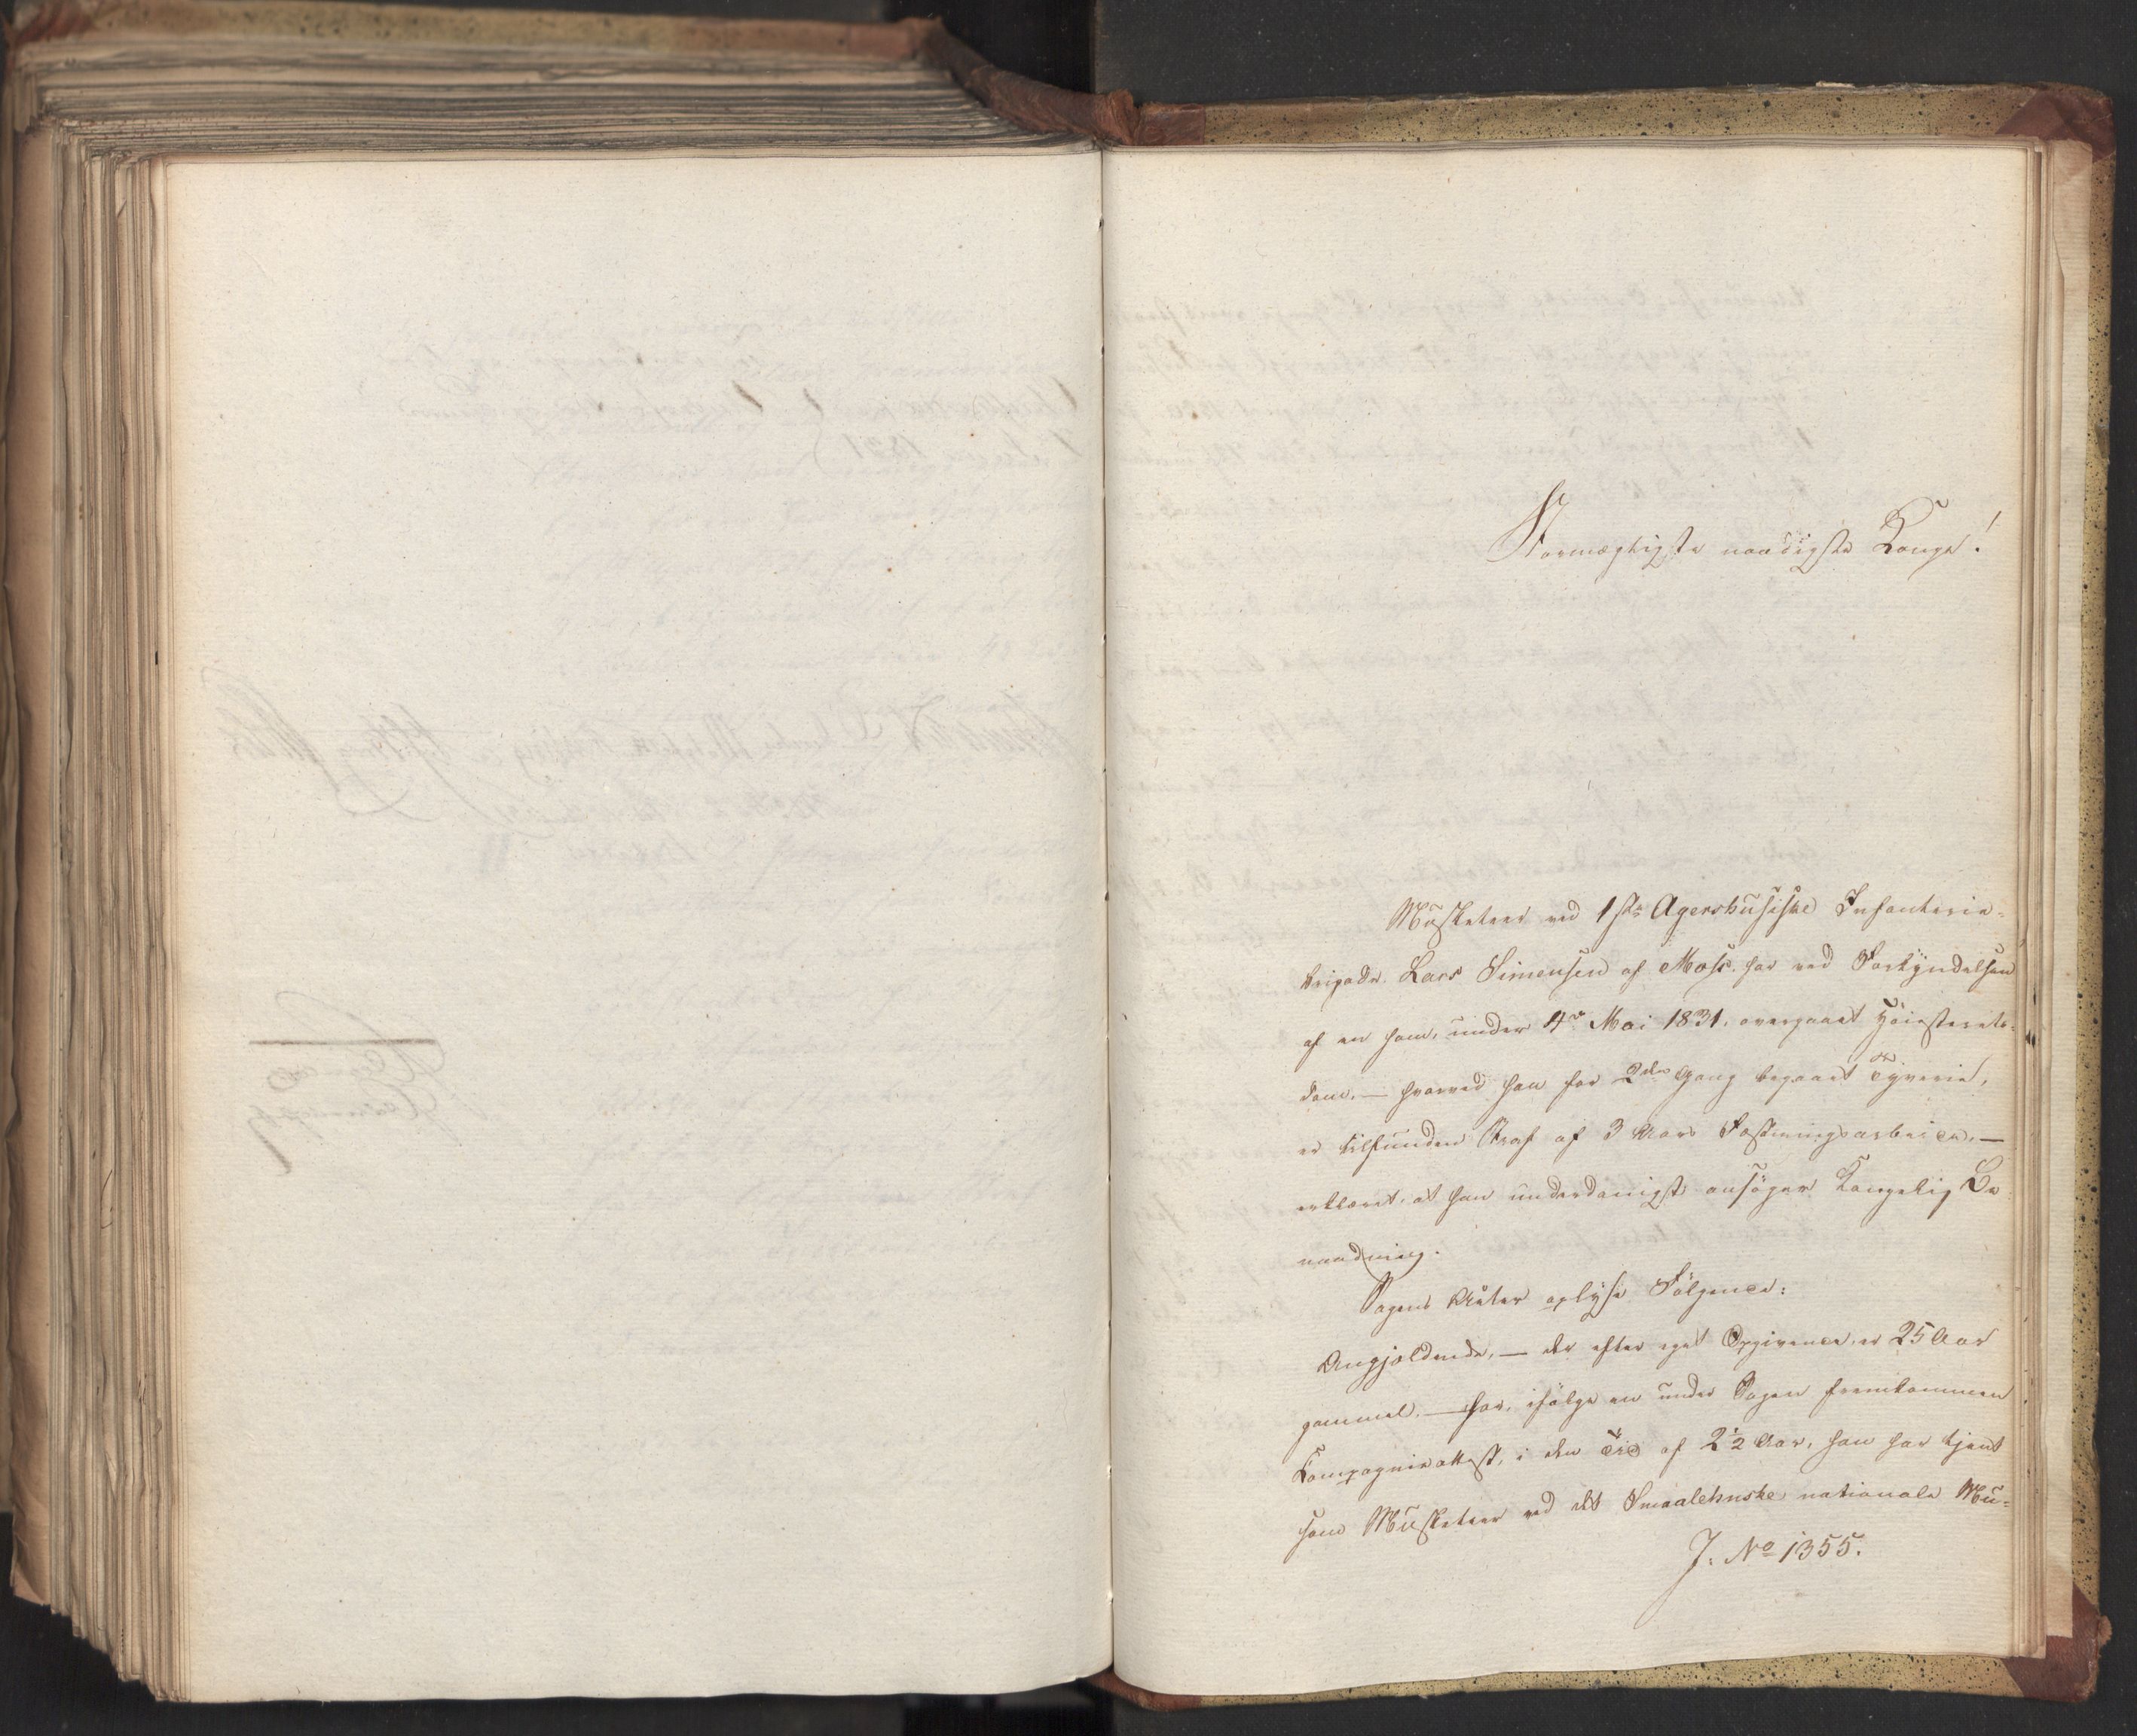 Stormægtigste naadigste Konge!
Musketeer ved 1ste Agershusiske Infanterie-
brigade, Lars Simensen af Moss, har ved Forkyndelsen
af en ham, under 4de Mai 1831, overgaaet Höiesterets-
dom, — hvorved han for 2den Gang begaaet Tyverie,
er tilfunden Straf af 3 Aars Fæstningsarbeide, —
erklæret, at han underdanigst ansöger Kongelig Be
naadning.
Sagens Akter oplyse Fölgende:
Angjældende, — der efter eget Opgivende, er 25 Aar
gammel, — har, ifölge en under Sagen fremkommen
Kompagnieattest, i den Tid af 2½ Aar, han har tjent
som Musketeer ved det Smaalehnske nationale Mu-
J. No 1355.